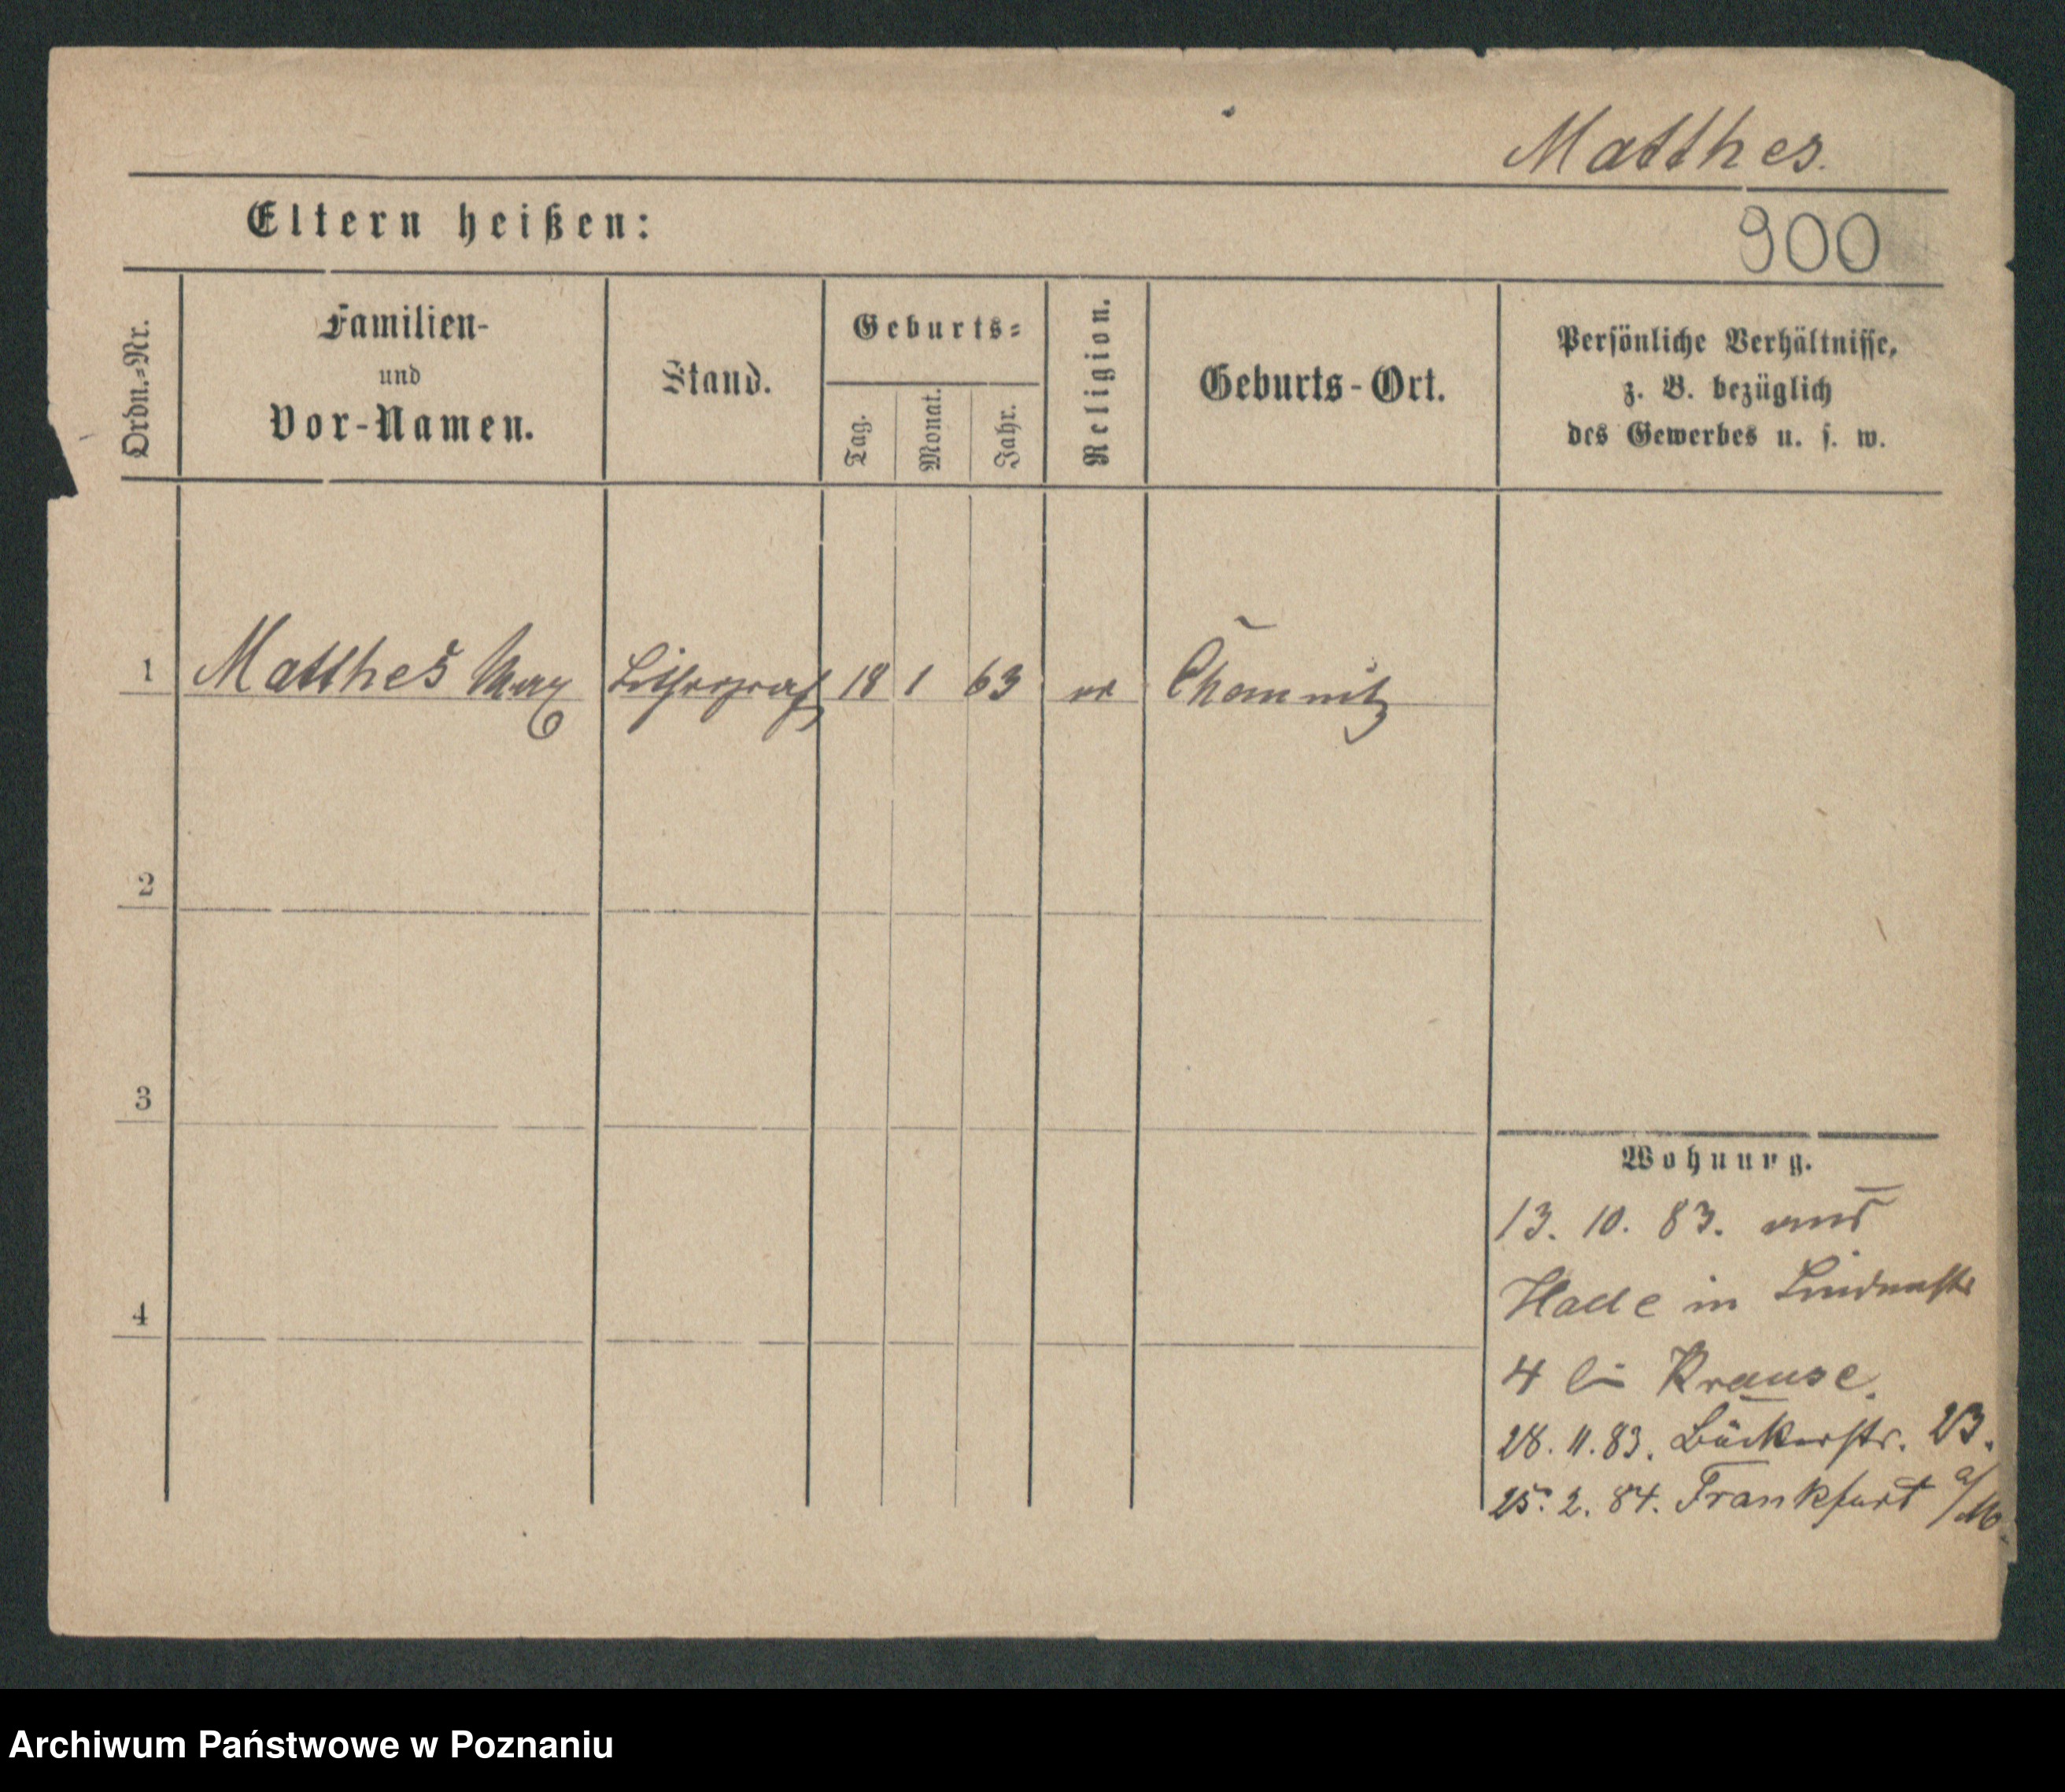 Matthes.
Eltern heißen:
900
Ordn.=Nr.
Familien-
und
Vor-Namen.
Stand.
Geburts=
Tag.
Monat.
Jahr.
Religion.
Geburts-Ort.
Persönliche Verhältnisse,
z. B. bezüglich
des Gewerbes u. s. w.
1 Matthes Max Lithograf 18 1 63 ev Chemnitz
2
3
4
Wohnung.
13. 10. 83. aus
Halle in Lindenstr
4 bei Krause.
28. 11. 83. Bäckerstr. 23.
25. 2. 84. Frankfurt a/M.
Archiwum Państwowe w Poznaniu